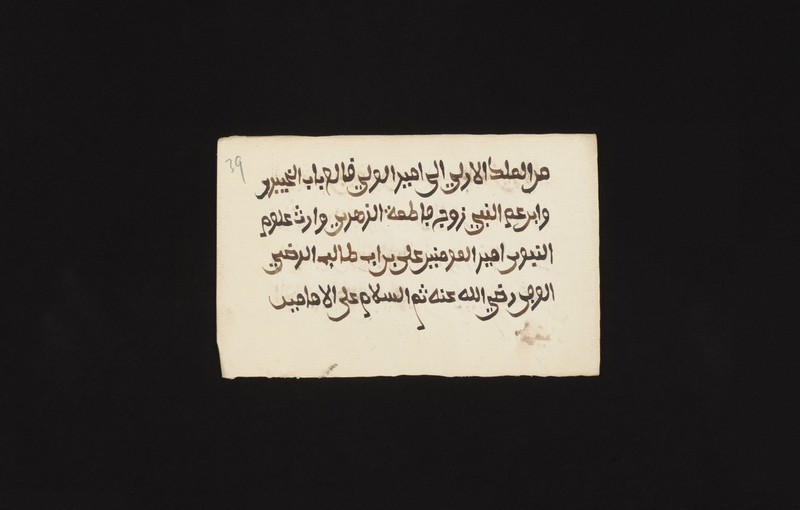 39
من الملك الاولي الى امير الولي قالع باب الخيبر
وابن عم النبي زوج فاطمة الزهرى وارث علوم
النبوى امير المومنين على بن اب طالب الرضي
الوصى رضي الله عنه ثم السلام على الامامين